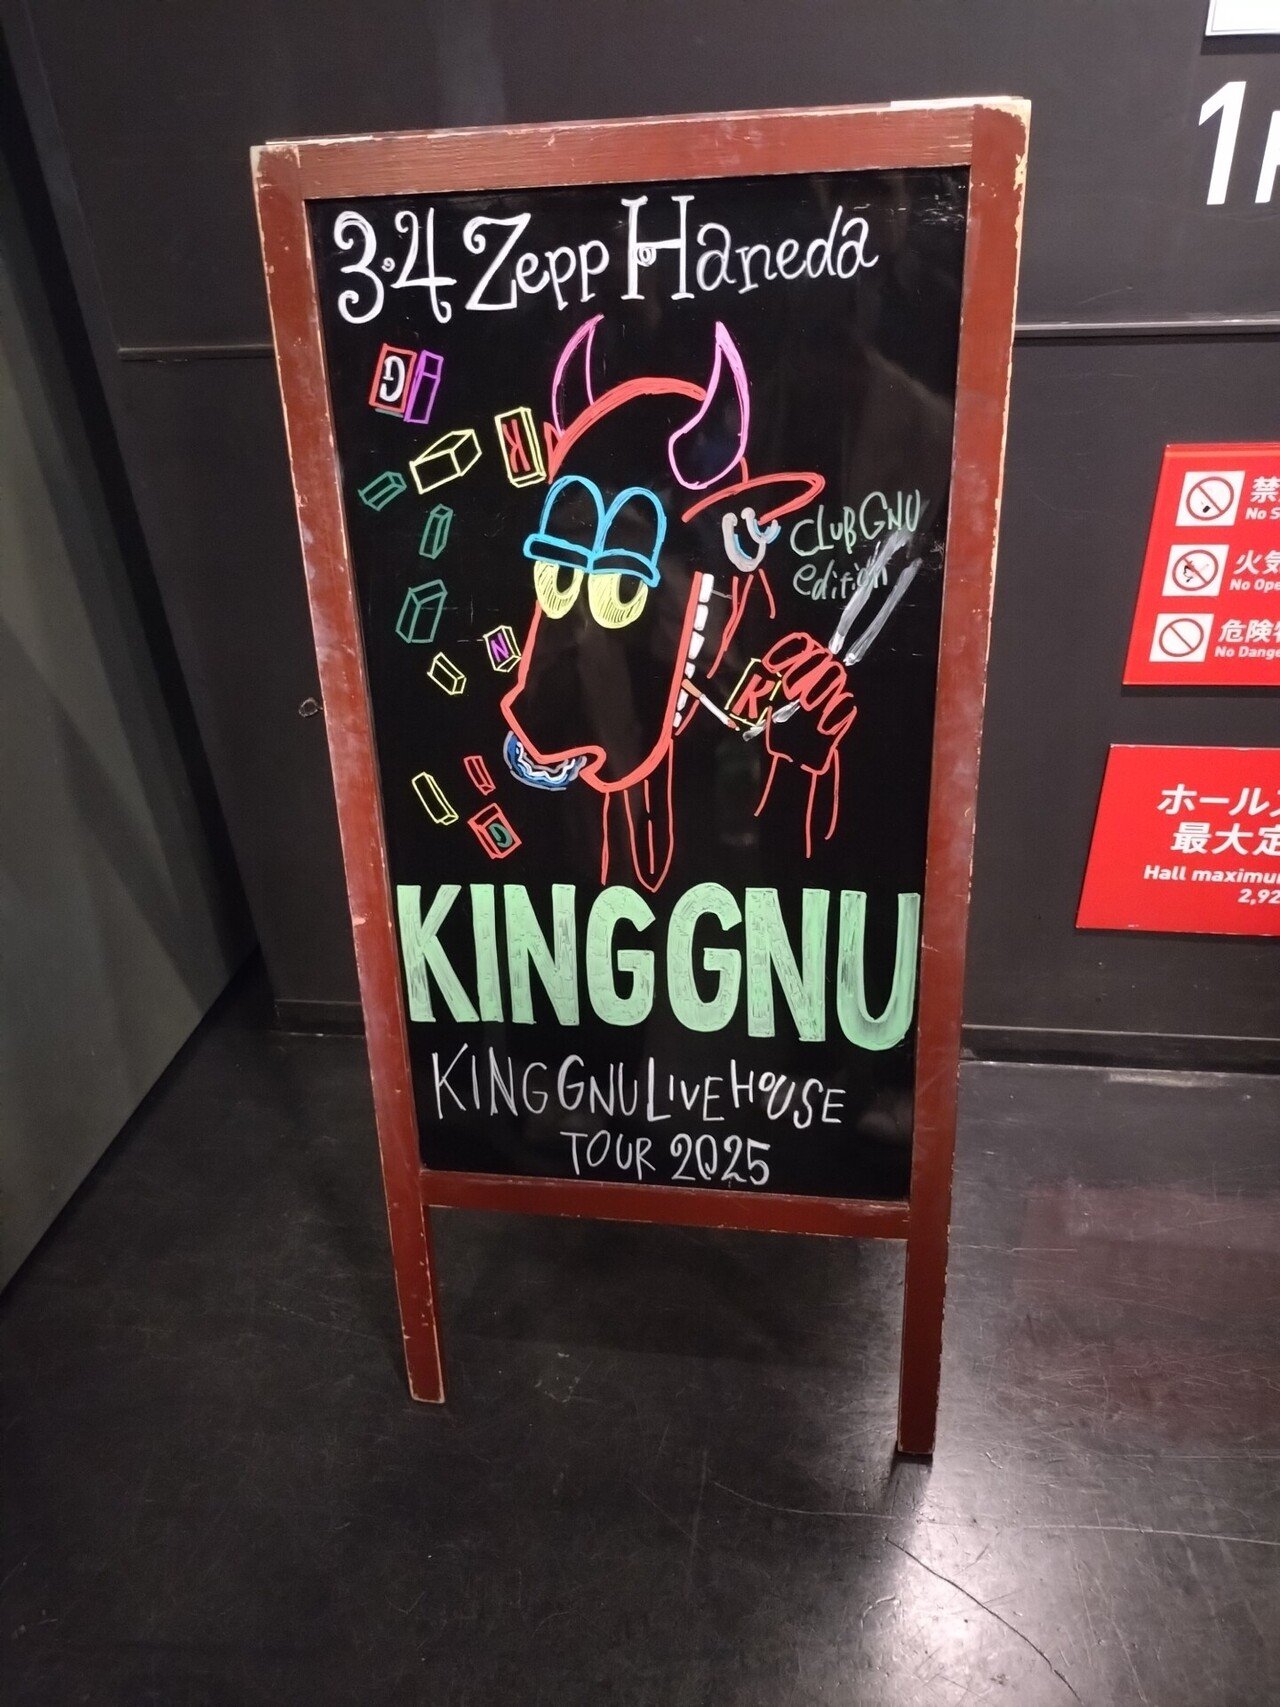 3.4 Zepp Haneda
G
K
CLUB GNU
edition
N
K
G
KING GNU
KING GNU LIVEHOUSE
TOUR 2025
1
禁
No S
火気
No Ope
危険物
No Dange
ホール
最大定
Hall maximu
2,92